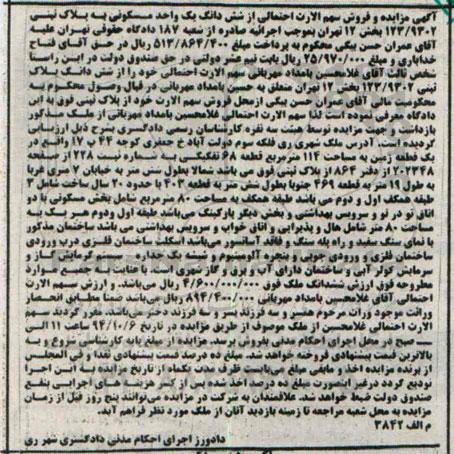 آگهی مزایده و فروش سهم الارث احتمالی از شش دانگ یک واحد مسکونی به پلاک ثبتی
۱۲۳/۹۳۰۲ بخش ۱۲ تهران بموجب اجرائیه صادره از شعبه ۱۸۷ دادگاه حقوقی تهران علیه
آقای عمران حسن بیگی محکوم به پرداخت مبلغ ۵۱۳/۸۶۳/۴۰۰ ریال در حق آقای فتاح
خدایاری و مبلغ ۲۵/۹۷۰/۰۰۰ ریال بابت نیم عشر دولتی در حق صندوق دولت در این راستا
شخص ثالث آقای غلامحسین بامداد مهربانی سهم الارث احتمالی خود را از شش دانگ پلاک
ثبتی ۱۲۳/۹۳۰۲ بخش ۱۲ تهران متعلق به حسین بامداد مهربانی در قبال وصول محکوم به
محکومیت مالی آقای عمران حسن بیگی ازمحل فروش سهم الارث خود از پلاک ثبتی فوق به این
دادگاه معرفی نموده است لذا سهم الارث احتمالی غلامحسین بامداد مهربانی از ملک مذکور
بازداشت و جهت مزایده توسط هیئت سه نفره کارشناسان رسمی دادگستری بشرح ذیل ارزیابی
گردیده است. آدرس ملک شهر ری فلکه سوم دولت آباد خ جعفری کوچه ۴۴ پ ۱۷ واقع در
یک قطعه زمین به مساحت ۱۱۴ مترمربع قطعه ۶۸ تفکیکی به شماره ثبت ۲۲۸ از صفحه
۲۰۲۳۴۸ از دفتر ۸۶۴ از پلاک ثبتی فوق می باشد شمالا بطول شش متر به خیابان ۷ متری غربا
به طول ۱۹ متر به قطعه ۴۶۹ جنوبا بطول شش متر به قطعه ۴۰۳ با حدود ۲۰ سال ساخت شامل ۳
طبقه همکف اول و دوم می باشد طبقه همکف به مساحت ۸۰ مترمربع شامل بخش مسکونی با دو
اتاق تو در تو و سرویس بهداشتی و بخش دیگر پارکینگ می‌باشد طبقه اول ودوم هر یک به
مساحت ۸۰ متر شامل هال و پذیرایی و اتاق خواب و سرویس بهداشتی می باشد ساختمان مذکور
با نمای سنگ سفید و راه پله سنگ و فاقد آسانسور می‌باشد اسکلت ساختمان فلزی درب ورودی
ساختمان فلزی و ورودی چوبی و پنجره آلومینیوم و شیشه یک جداره سیستم گرمایش گاز و
سرمایش کولر آبی و ساختمان دارای آب و برق و گاز شهری است. با عنایت به جمیع موارد
مطروحه فوق ارزش ششدانگ ملک فوق ۴/۶۰۰/۰۰۰/۰۰۰ ریال می‌باشد. و ارزش سهم الارث
احتمالی آقای غلامحسین بامداد مهربانی ۸۹۴/۴۰۰/۰۰۰ ریال می‌باشد ضمنا مطابق انحصار
وراثت موجود وراث مرحوم همسر و سه فرزند پسر و سه فرزند دختر می‌باشد. مقرر گردید سهم
الارث احتمالی غلامحسن از ملک موصوف از طریق مزایده در تاریخ ۹۴/۱۰/۶ ساعت ۱۱ الی
صبح در محل اجرای احکام مدنی بفروش برسد. مزایده از مبلغ پایه کارشناسی شروع و به
بالاترین قیمت پیشنهادی فروخته خواهد شد. مبلغ ده درصد قیمت پیشنهادی نقدا و فی المجلس
از برنده مزایده اخذ و مابقی مبلغ می‌بایست ظرف مدت یکماه از تاریخ مزایده به این اجرا
تودیع گردد درغیر اینصورت مبلغ ده درصد اخذ شده پس از کسر هزینه های اجرایی بنفع
صندوق دولت ضبط خواهد شد. علاقمندان به شرکت در مزایده می‌توانند پنج روز قبل از زمان
مزایده به محل شعبه مراجعه تا زمینه بازدید آنان از ملک مورد نظر فراهم آید.
م الف ۳۸۴۲
دادورز اجرای احکام مدنی دادگستری شهر ری